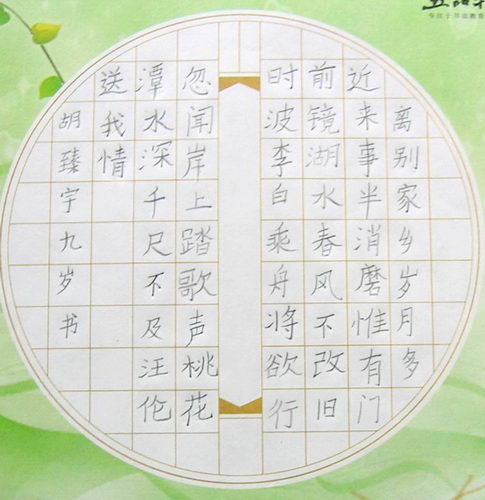 离别家乡岁月多
近来事半消磨惟有门
前镜湖水春风不改旧
时波李白乘舟将欲行
忽闻岸上踏歌声桃花
潭水深千尺不及汪伦
送我情
胡臻宇九岁书